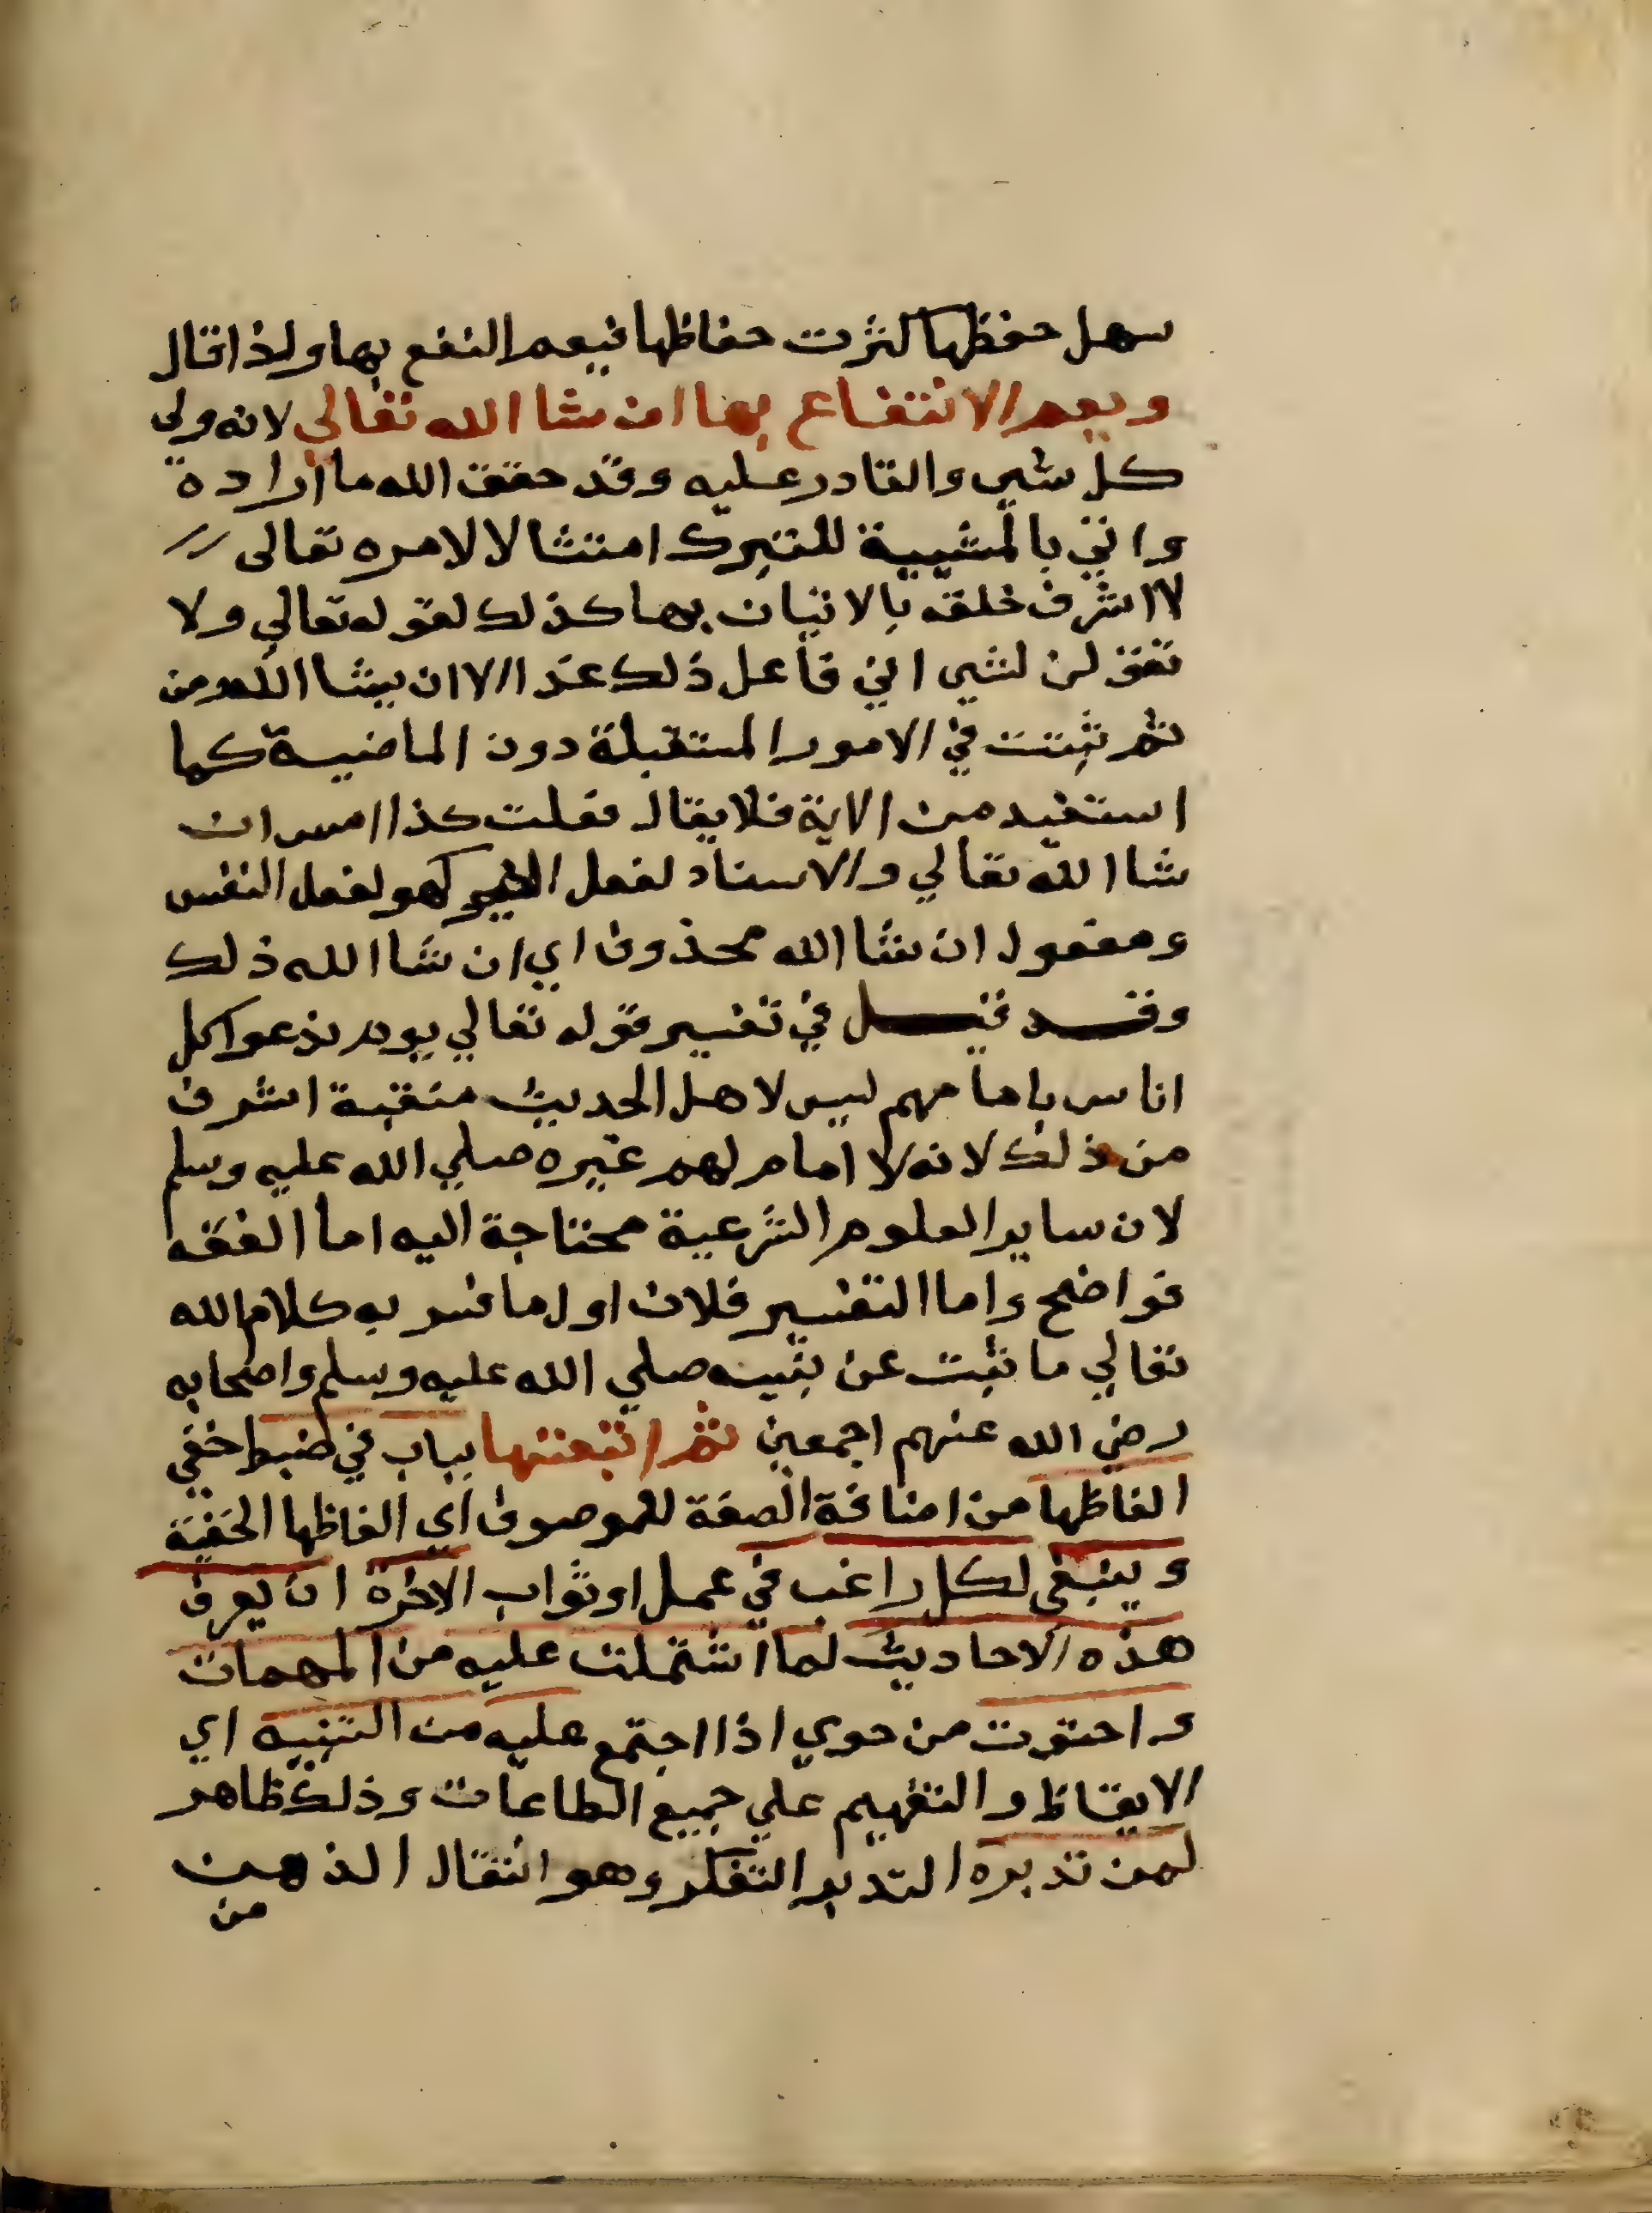 سهل حفظها كثرت حفاظها فيعم النفع بها ولذا قال
ويعم الانتفاع بها ان شا الله تعالي لانه ولي
كل شي والقادر عليه وقد حقق الله ما اراده
واتي بالمشيية للتبرك امتثالا لامره تعالى
لاشرف خلقه بالاتيان بها كذلك لقوله تعالي ولا
تقولن لشي اني فاعل ذلك غدا الا ان يشا الله ومن
ثم ثبتت في الامور المستقبلة دون الماضية كما
استفيد من الاية فلا يقال فعلت كذا امس ان
شا الله تعالي والاسناد لفعل الغير كهو لفعل النفس
ومفعول ان شا الله محذوف اي ان شا الله ذلك
وقد قيل في تفسير قوله تعالي يوم ندعوا كل
اناس بامامهم ليس لاهل الحديث منقبة اشرف
من ذلك لانه لا امام لهم غيره صلي الله عليه وسلم
لان ساير العلوم الشرعية محتاجة اليه اما الفقه
فواضح واما التفسير فلان اول ما فسر به كلام الله
تعالي ما ثبت عن نبيه صلي الله عليه وسلم واصحابه
رضي الله عنهم اجمعين ثم اتبعتها بباب في ضبط خفي
الفاظها من اضافة الصفة للموصوف اي الفاظها الخفية
وينبغي لكل راغب في عمل او ثواب الاخرة ان يعرف
هذه الاحاديث لما اشتملت عليه من المهمات
واحتوت من حوي اذا اجتمع عليه من التنبيه اي
الايقاظ والتفهيم علي جميع الطاعات وذلك ظاهر
لمن تدبره التدبر التفكر وهو انتقال الذهن
من